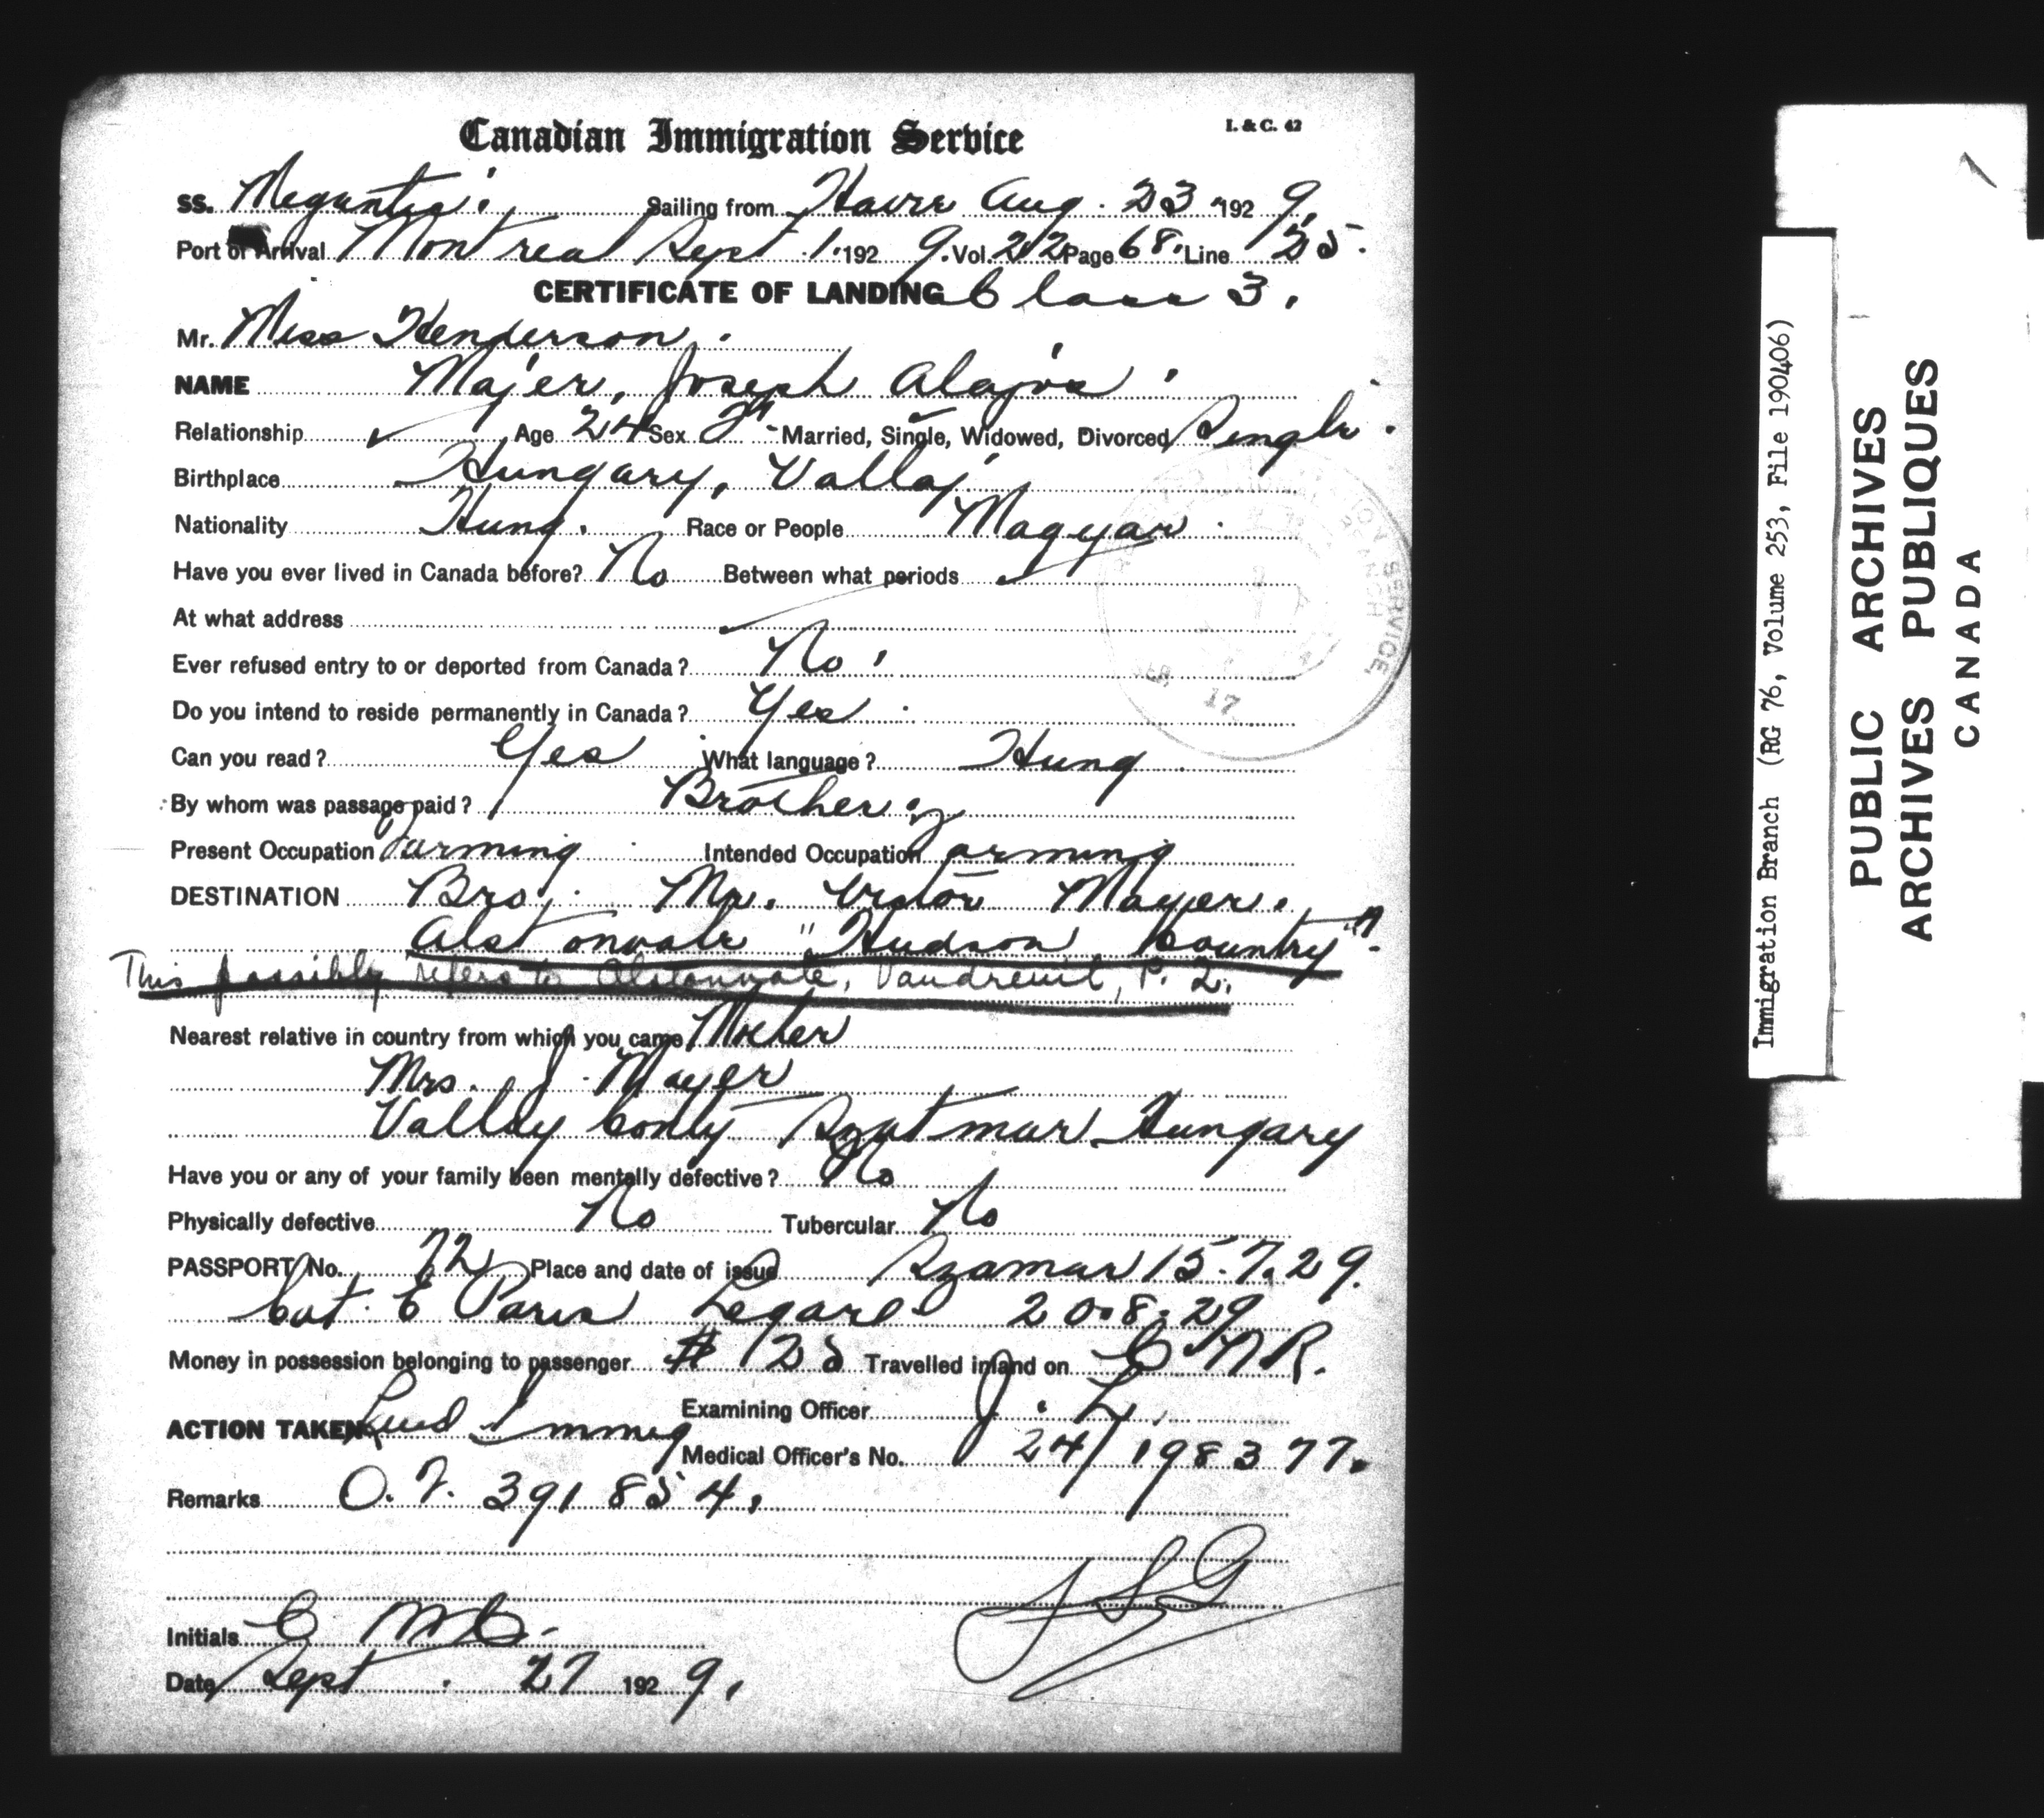 Canadian Immigration Service
I. & C. 42
SS. Megantic. Sailing from Havre Aug. 23 192 9.
Port of Arrival Montreal Sept 1. 192 9. Vol. 22 Page 68. Line 25.
CERTIFICATE OF LANDING Class 3.
Mr. Miss Henderson.
NAME Majer, Joseph Alajos
Relationship Age 24 Sex M Married, Single, Widowed, Divorced Single.
Birthplace Hungary, Vallaj
Nationality Hung. Race or People Magyar.
Have you ever lived in Canada before? No Between what periods
At what address
Ever refused entry to or deported from Canada? No.
Do you intend to reside permanently in Canada? Yes.
Can you read? Yes What language? Hung
By whom was passage paid? Brother
Present Occupation Farming Intended Occupation Farming
DESTINATION Bro. Mr. Victor Mayer.
Alstonvale "Hudson Country".
This possibly refers to Alstonvale, Vaudreuil, P. Q.
Nearest relative in country from which you came Mother
Mrs. J. Mayer
Vallay Conty Szatmar Hungary
Have you or any of your family been mentally defective? No
Physically defective No Tubercular No
PASSPORT No. 72 Place and date of issue Szamar 15.7.29.
Cat. C Paris Legare 20.8.29
Money in possession belonging to passenger $ 25 Travelled inland on C.N.R.
Examining Officer J. L.
ACTION TAKEN Lnd Immig
Medical Officer's No. 24/198377.
Remarks O.F. 391854.
Initials C McC.
Date Sept. 27 192 9.
SERVICE,
17
Immigration Branch (RG 76, Volume 253, File 190406)
PUBLIC ARCHIVES
ARCHIVES PUBLIQUES
CANADA